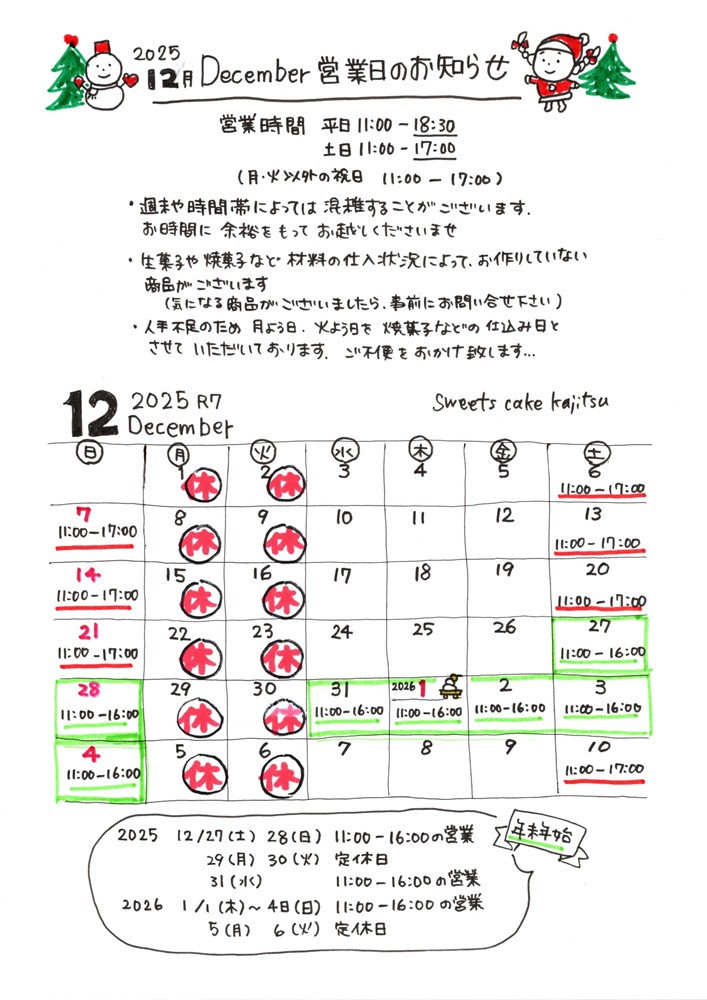 2025
12月 December 営業日のお知らせ
営業時間 平日 11:00 - 18:30
土日 11:00 - 17:00
(月・火以外の祝日 11:00 - 17:00)
・週末や時間帯によっては 混雑することがございます.
お時間に 余裕をもって お越しくださいませ
・生菓子や焼菓子など 材料の仕入状況によって、お作りしていない
商品がございます
(気になる商品がございましたら、事前にお問い合せ下さい)
・人手不足のため 月よう日. 火よう日を 焼菓子などの仕込み日と
させて いただいております. ご不便を おかけ致します...
12 2025 R7 Sweets cake kajitsu
December
日 月 火 水 木 金 土
1 2 3 4 5 6
休 休 11:00-17:00
7 8 9 10 11 12 13
11:00-17:00 休 休 11:00-17:00
14 15 16 17 18 19 20
11:00-17:00 休 休 11:00-17:00
21 22 23 24 25 26 27
11:00-17:00 休 休 11:00-16:00
28 29 30 31 2026 1 2 3
11:00-16:00 休 休 11:00-16:00 11:00-16:00 11:00-16:00 11:00-16:00
4 5 6 7 8 9 10
11:00-16:00 休 休 11:00-17:00
年末年始
2025 12/27(土) 28(日) 11:00-16:00の営業
29(月) 30(火) 定休日
31(水) 11:00-16:00の営業
2026 1/1(木)~4日(日) 11:00-16:00の営業
5(月) 6(火) 定休日